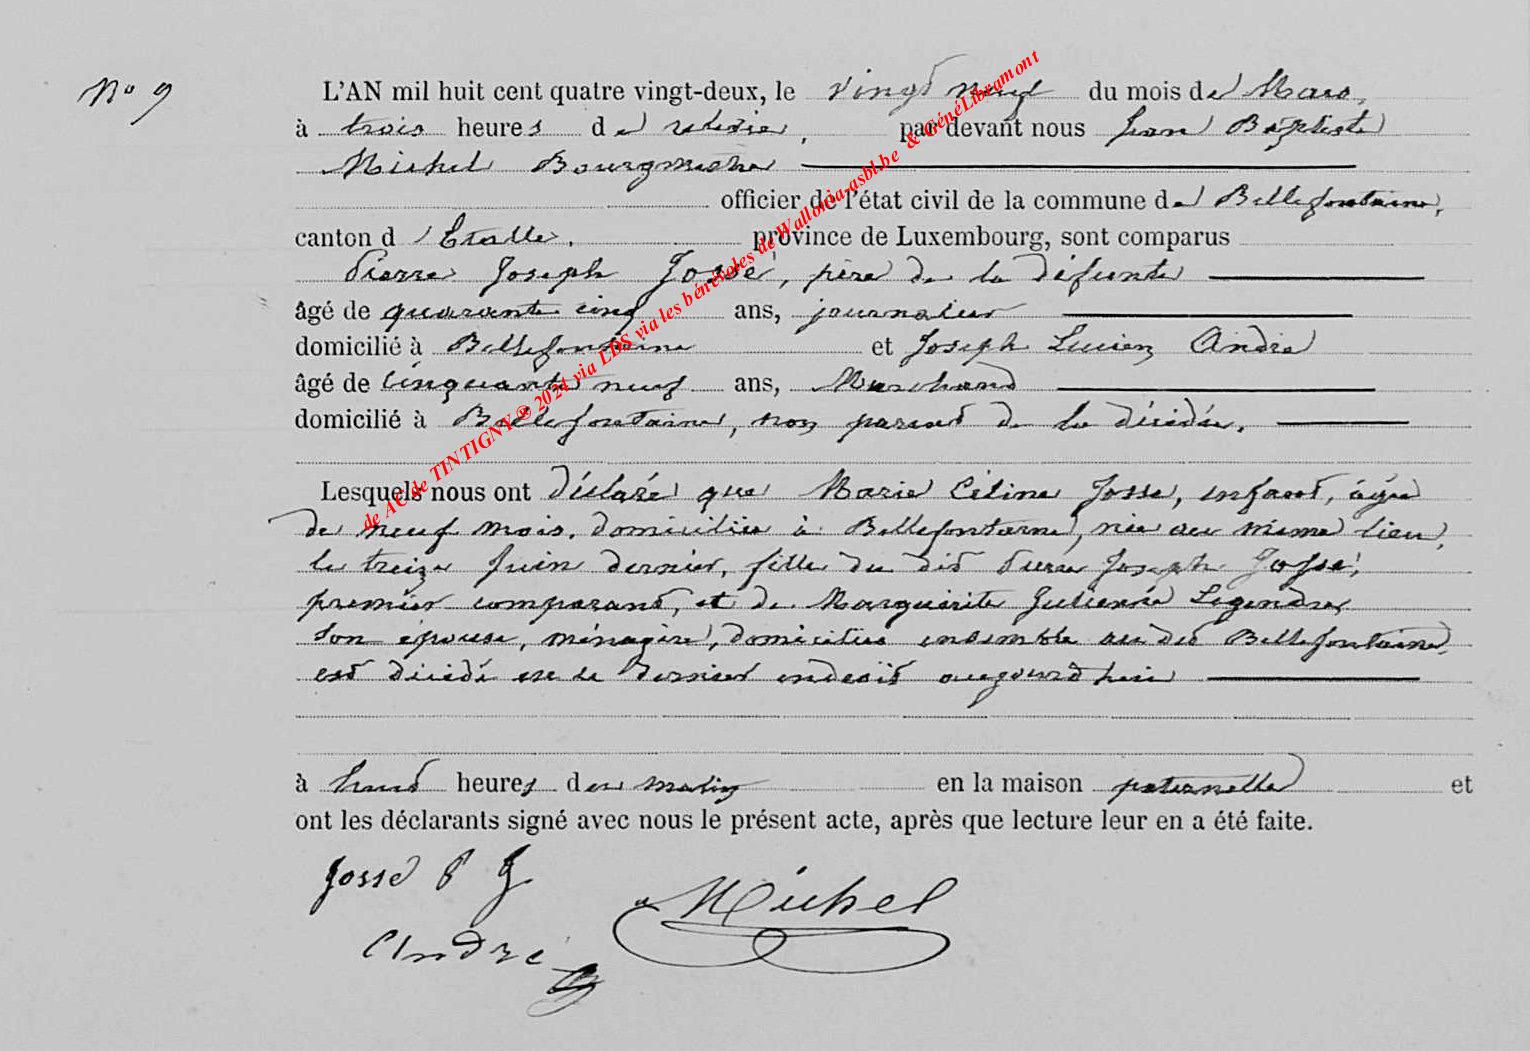 N° 9
L'AN mil huit cent quatre vingt-deux, le vingt neuf du mois de Mars,
à trois heures de relevée, par devant nous Jean Baptiste
Michel Bourgmestre
officier de l'état civil de la commune de Bellefontaine,
canton d'Etalle, province de Luxembourg, sont comparus
Pierre Joseph Jossé, père de la défunte
âgé de quarante cinq ans, journalier
domicilié à Bellefontaine et Joseph Lucien André
âgé de cinquante neuf ans, Marchand
domicilié à Bellefontaine, non parent de la décédée.
Lesquels nous ont déclaré que Marie Céline Josse, enfant, âgée
de neuf mois, domiciliée à Bellefontaine, née au même lieu,
le treize Juin dernier, fille du dit Pierre Joseph Jossé,
premier comparant, et de Marguérite Julienne Legendre,
son épouse, ménagère, domiciliés ensemble au dit Bellefontaine,
est décédé en ce dernier endroit aujourd'hui
à heures du matin en la maison paternelle et
ont les déclarants signé avec nous le présent acte, après que lecture leur en a été faite.
Josse P J
Michel
André
de AC de TINTIGNY ® 2024 via LDS via les bénévoles de Wallonia-asbl.be & GénéLibramont